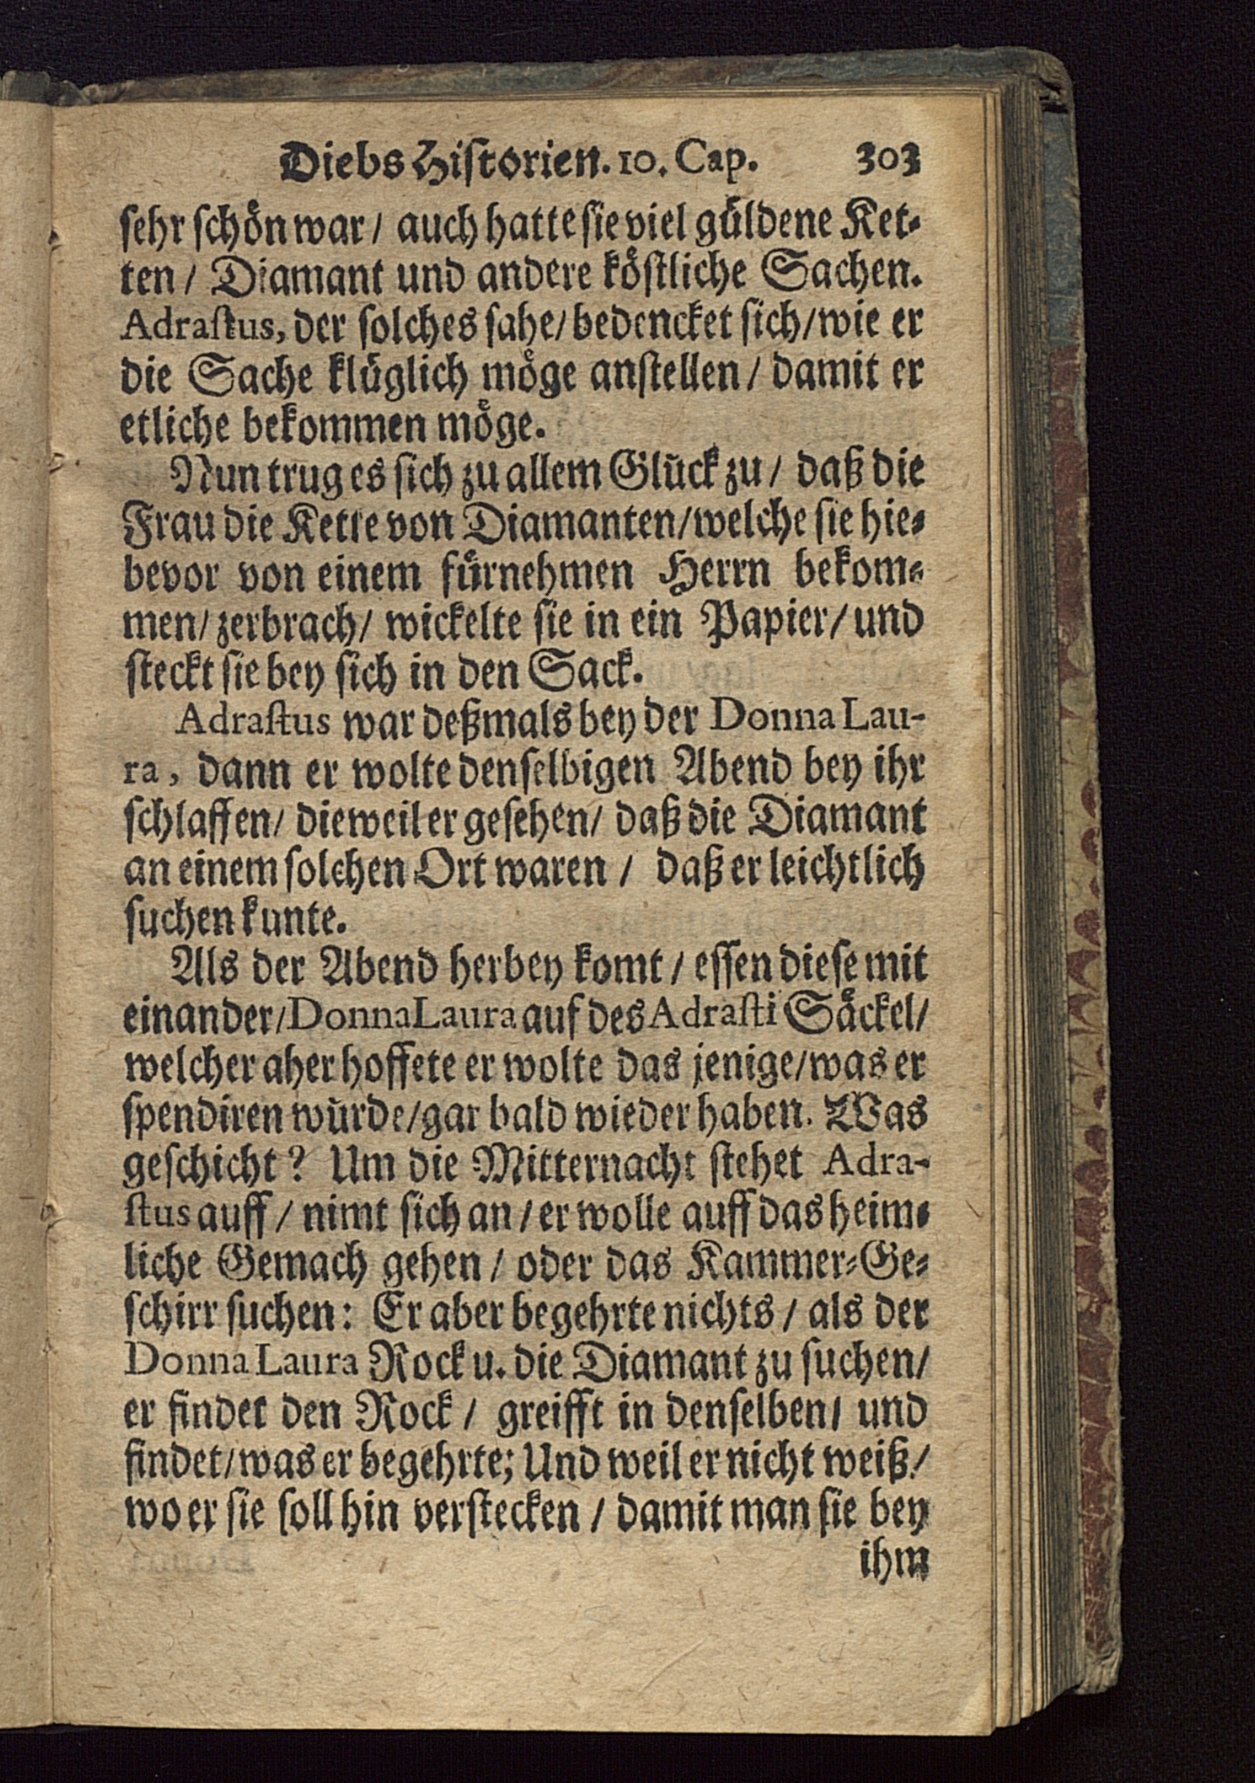 Diebs Historien. 10. Cap. 303
sehr schön war / auch hatte sie viel güldene Ket-
ten / Diamant und andere köstliche Sachen.
Adrastus, der solches sahe / bedencket sich / wie er
die Sache klüglich möge anstellen / damit er
etliche bekommen möge.
Nun trug es sich zu allem Glück zu / daß die
Frau die Kette von Diamanten / welche sie hie-
bevor von einem fürnehmen Herrn bekom-
men / zerbrach / wickelte sie in ein Papier / und
steckt sie bey sich in den Sack.
Adrastus war deßmals bey der Donna Lau-
ra, dann er wolte denselbigen Abend bey ihr
schlaffen / dieweil er gesehen / daß die Diamant
an einem solchen Ort waren / daß er leichtlich
suchen kunte.
Als der Abend herbey komt / essen diese mit
einander / Donna Laura auf des Adrasti Säckel /
welcher aher hoffete er wolte das jenige / was er
spendiren würde / gar bald wieder haben. Was
geschicht? Um die Mitternacht stehet Adra-
stus auff / nimt sich an / er wolle auff das heim-
liche Gemach gehen / oder das Kammer-Ge-
schirr suchen: Er aber begehrte nichts / als der
Donna Laura Rock u. die Diamant zu suchen /
er findet den Rock / greifft in denselben / und
findet / was er begehrte; Und weil er nicht weiß /
wo er sie soll hin verstecken / damit man sie bey
ihm